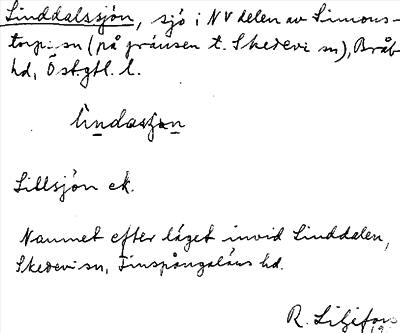 Linddalssjön, sjö i NV delen av Simons-
torp sn (på gränsen t. Skedevi sn), Bråb
hd, Östgtl. l.
lindasjøn
Lillsjön ek.
Namnet efter läget invid Linddalen,
Skedevi sn, Finspångaläns hd.
R. Liljefors